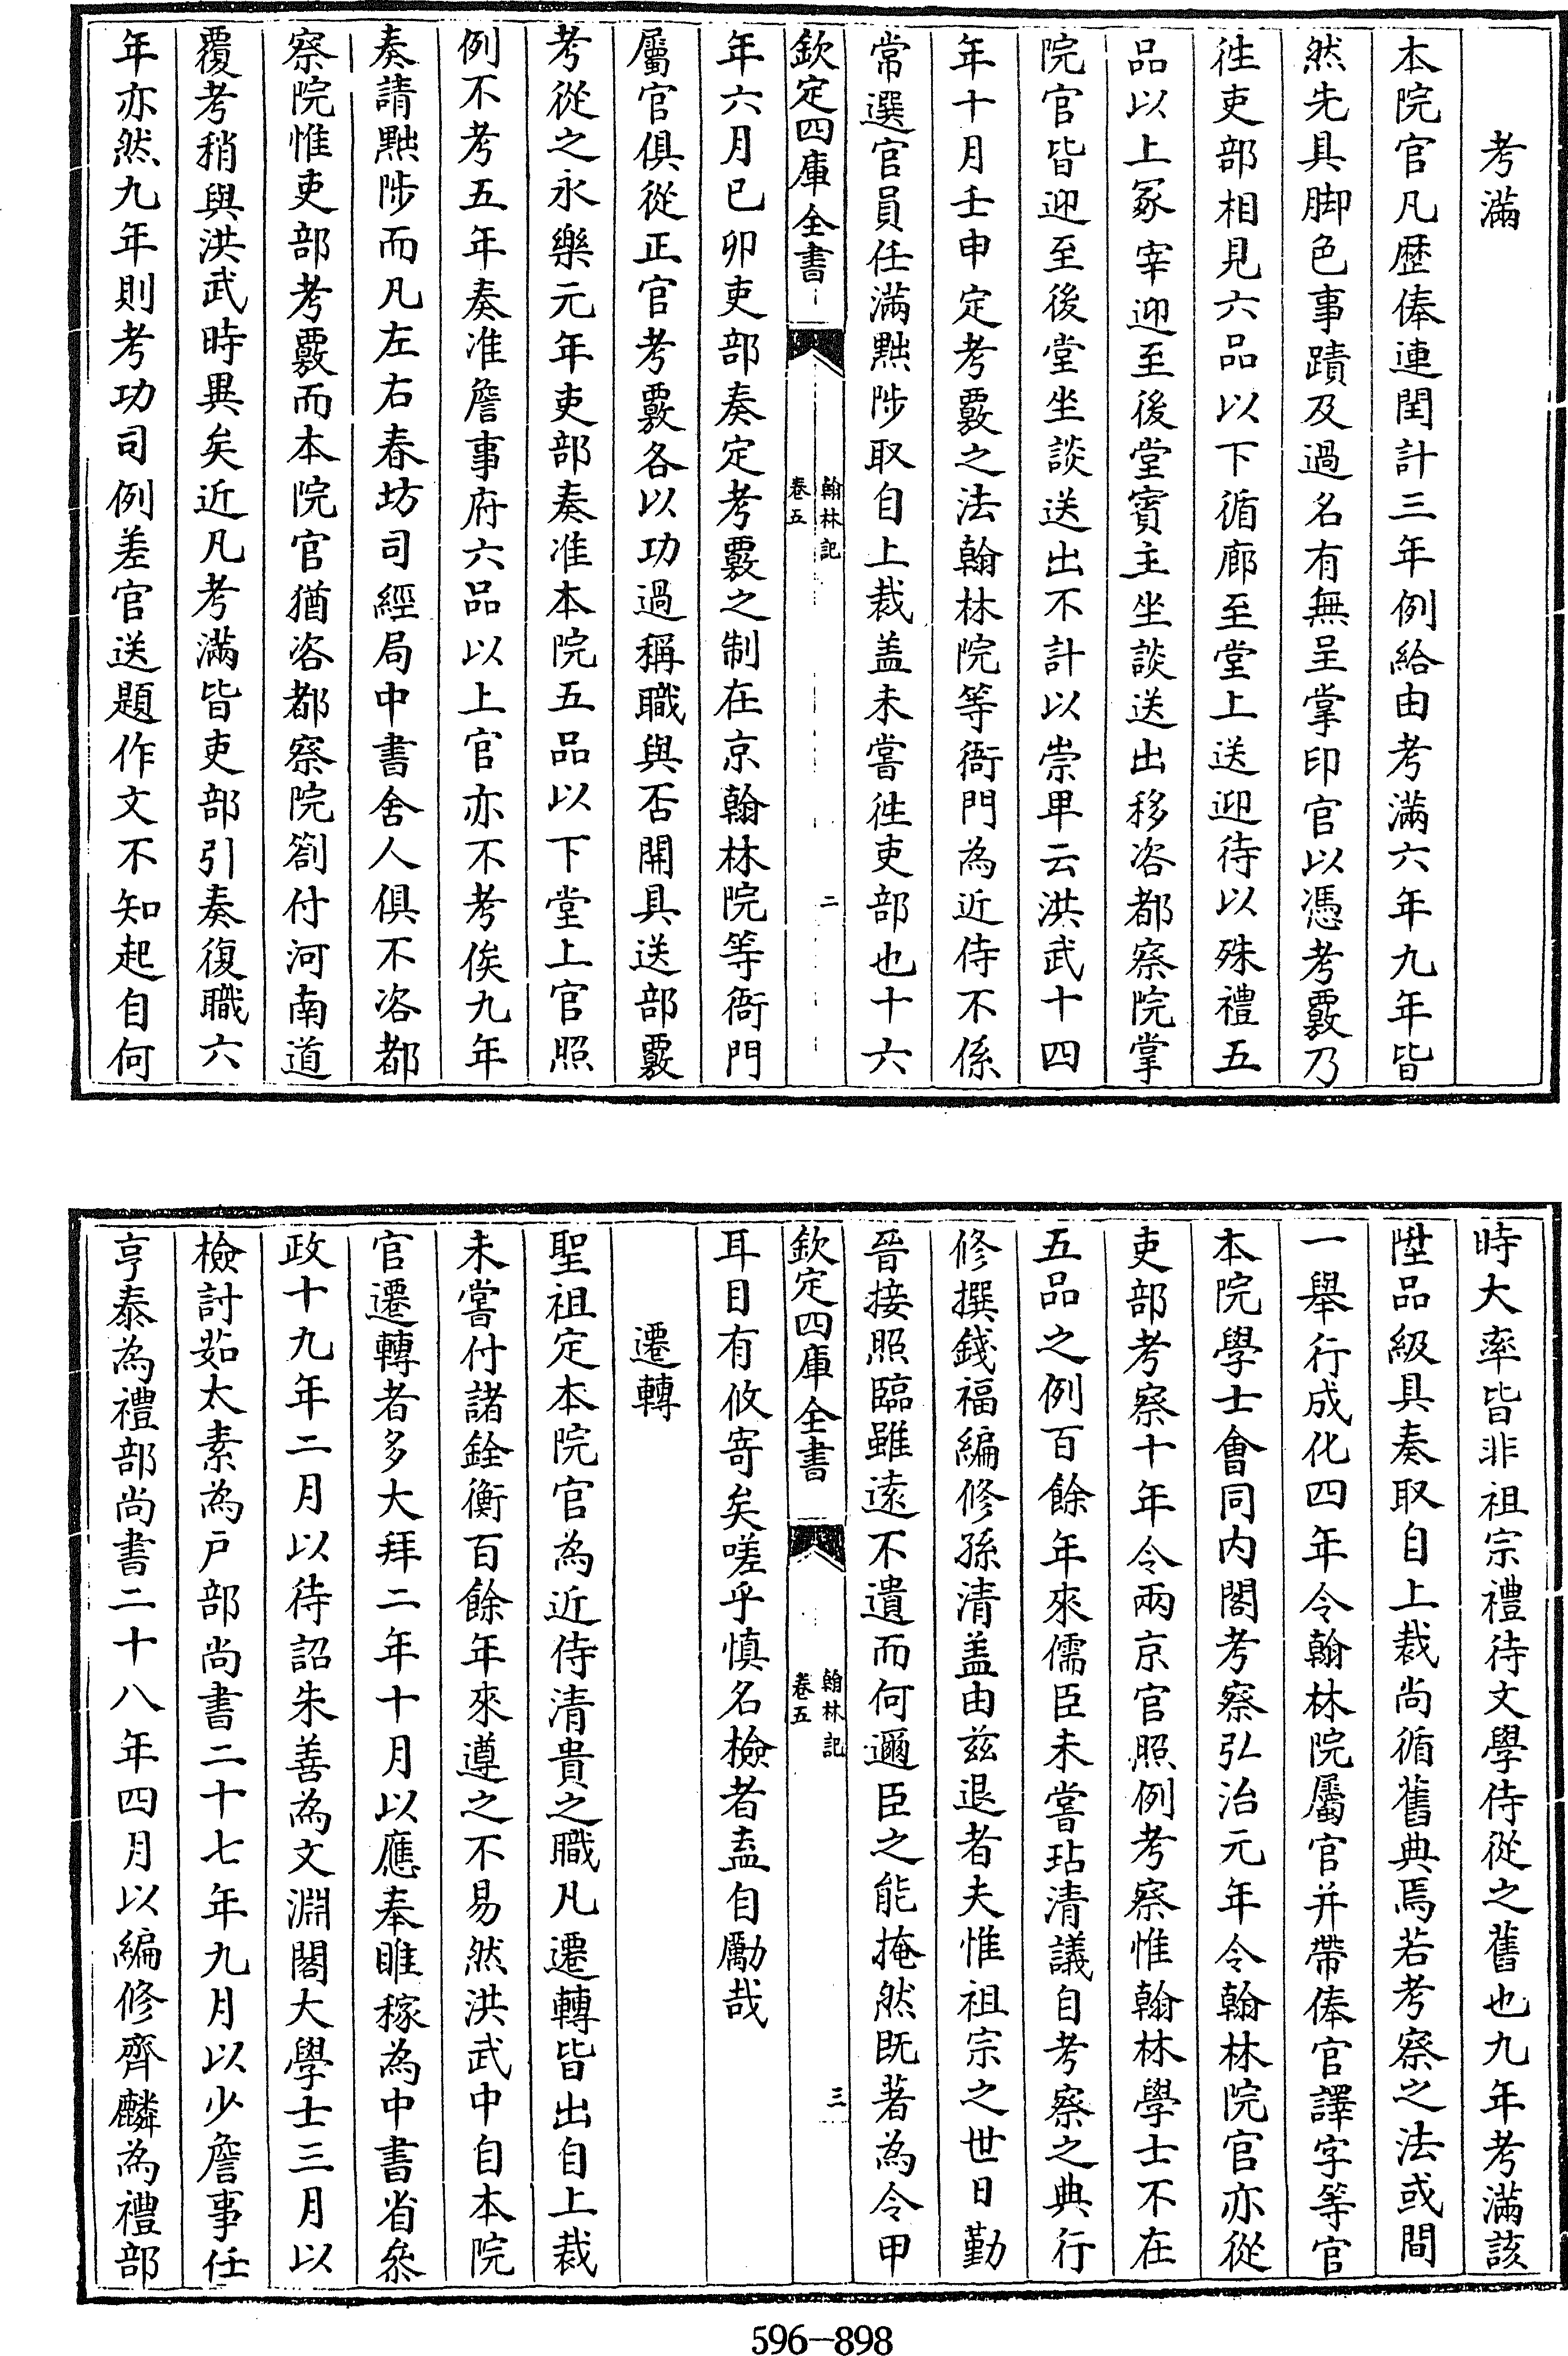 考滿
本院官凡歴俸連閏計三年例給由考滿六年九年皆
然先具脚色事蹟及過名有無呈掌印官以憑考覈乃
徃吏部相見六品以下循廊至堂上送迎待以殊禮五
品以上冢宰迎至後堂賓主坐談送出移咨都察院掌
院官皆迎至後堂坐談送出不計以崇卑云洪武十四
年十月壬申定考覈之法翰林院等衙門為近侍不係
常選官員任滿黜陟取自上裁盖未嘗徃吏部也十六
欽定四庫全書
翰林記
卷五
二
年六月已卯吏部奏定考覈之制在京翰林院等衙門
屬官俱從正官考覈各以功過稱職與否開具送部覈
考從之永樂元年吏部奏准本院五品以下堂上官照
例不考五年奏准詹事府六品以上官亦不考俟九年
奏請黜陟而凡左右春坊司經局中書舍人俱不咨都
察院惟吏部考覈而本院官猶咨都察院劄付河南道
覆考稍與洪武時異矣近凡考滿皆吏部引奏復職六
年亦然九年則考功司例差官送題作文不知起自何
時大率皆非祖宗禮待文學侍從之舊也九年考滿該
陞品級具奏取自上裁尚循舊典焉若考察之法或間
一舉行成化四年令翰林院屬官并帶俸官譯字等官
本院學士會同内閣考察弘治元年令翰林院官亦從
吏部考察十年令兩京官照例考察惟翰林學士不在
五品之例百餘年來儒臣未嘗玷清議自考察之典行
修撰錢福編修孫清盖由兹退者夫惟祖宗之世日勤
晉接照臨雖遠不遺而何邇臣之能掩然既著為令甲
欽定四庫全書
翰林記
卷五
三
耳目有攸寄矣嗟乎慎名檢者盍自勵哉
遷轉
聖祖定本院官為近侍清貴之職凡遷轉皆出自上裁
未嘗付諸銓衡百餘年來遵之不易然洪武中自本院
官遷轉者多大拜二年十月以應奉睢稼為中書省叅
政十九年二月以待詔朱善為文淵閣大學士三月以
檢討茹太素為戶部尚書二十七年九月以少詹事任
亨泰為禮部尚書二十八年四月以編修齊麟為禮部
596—898